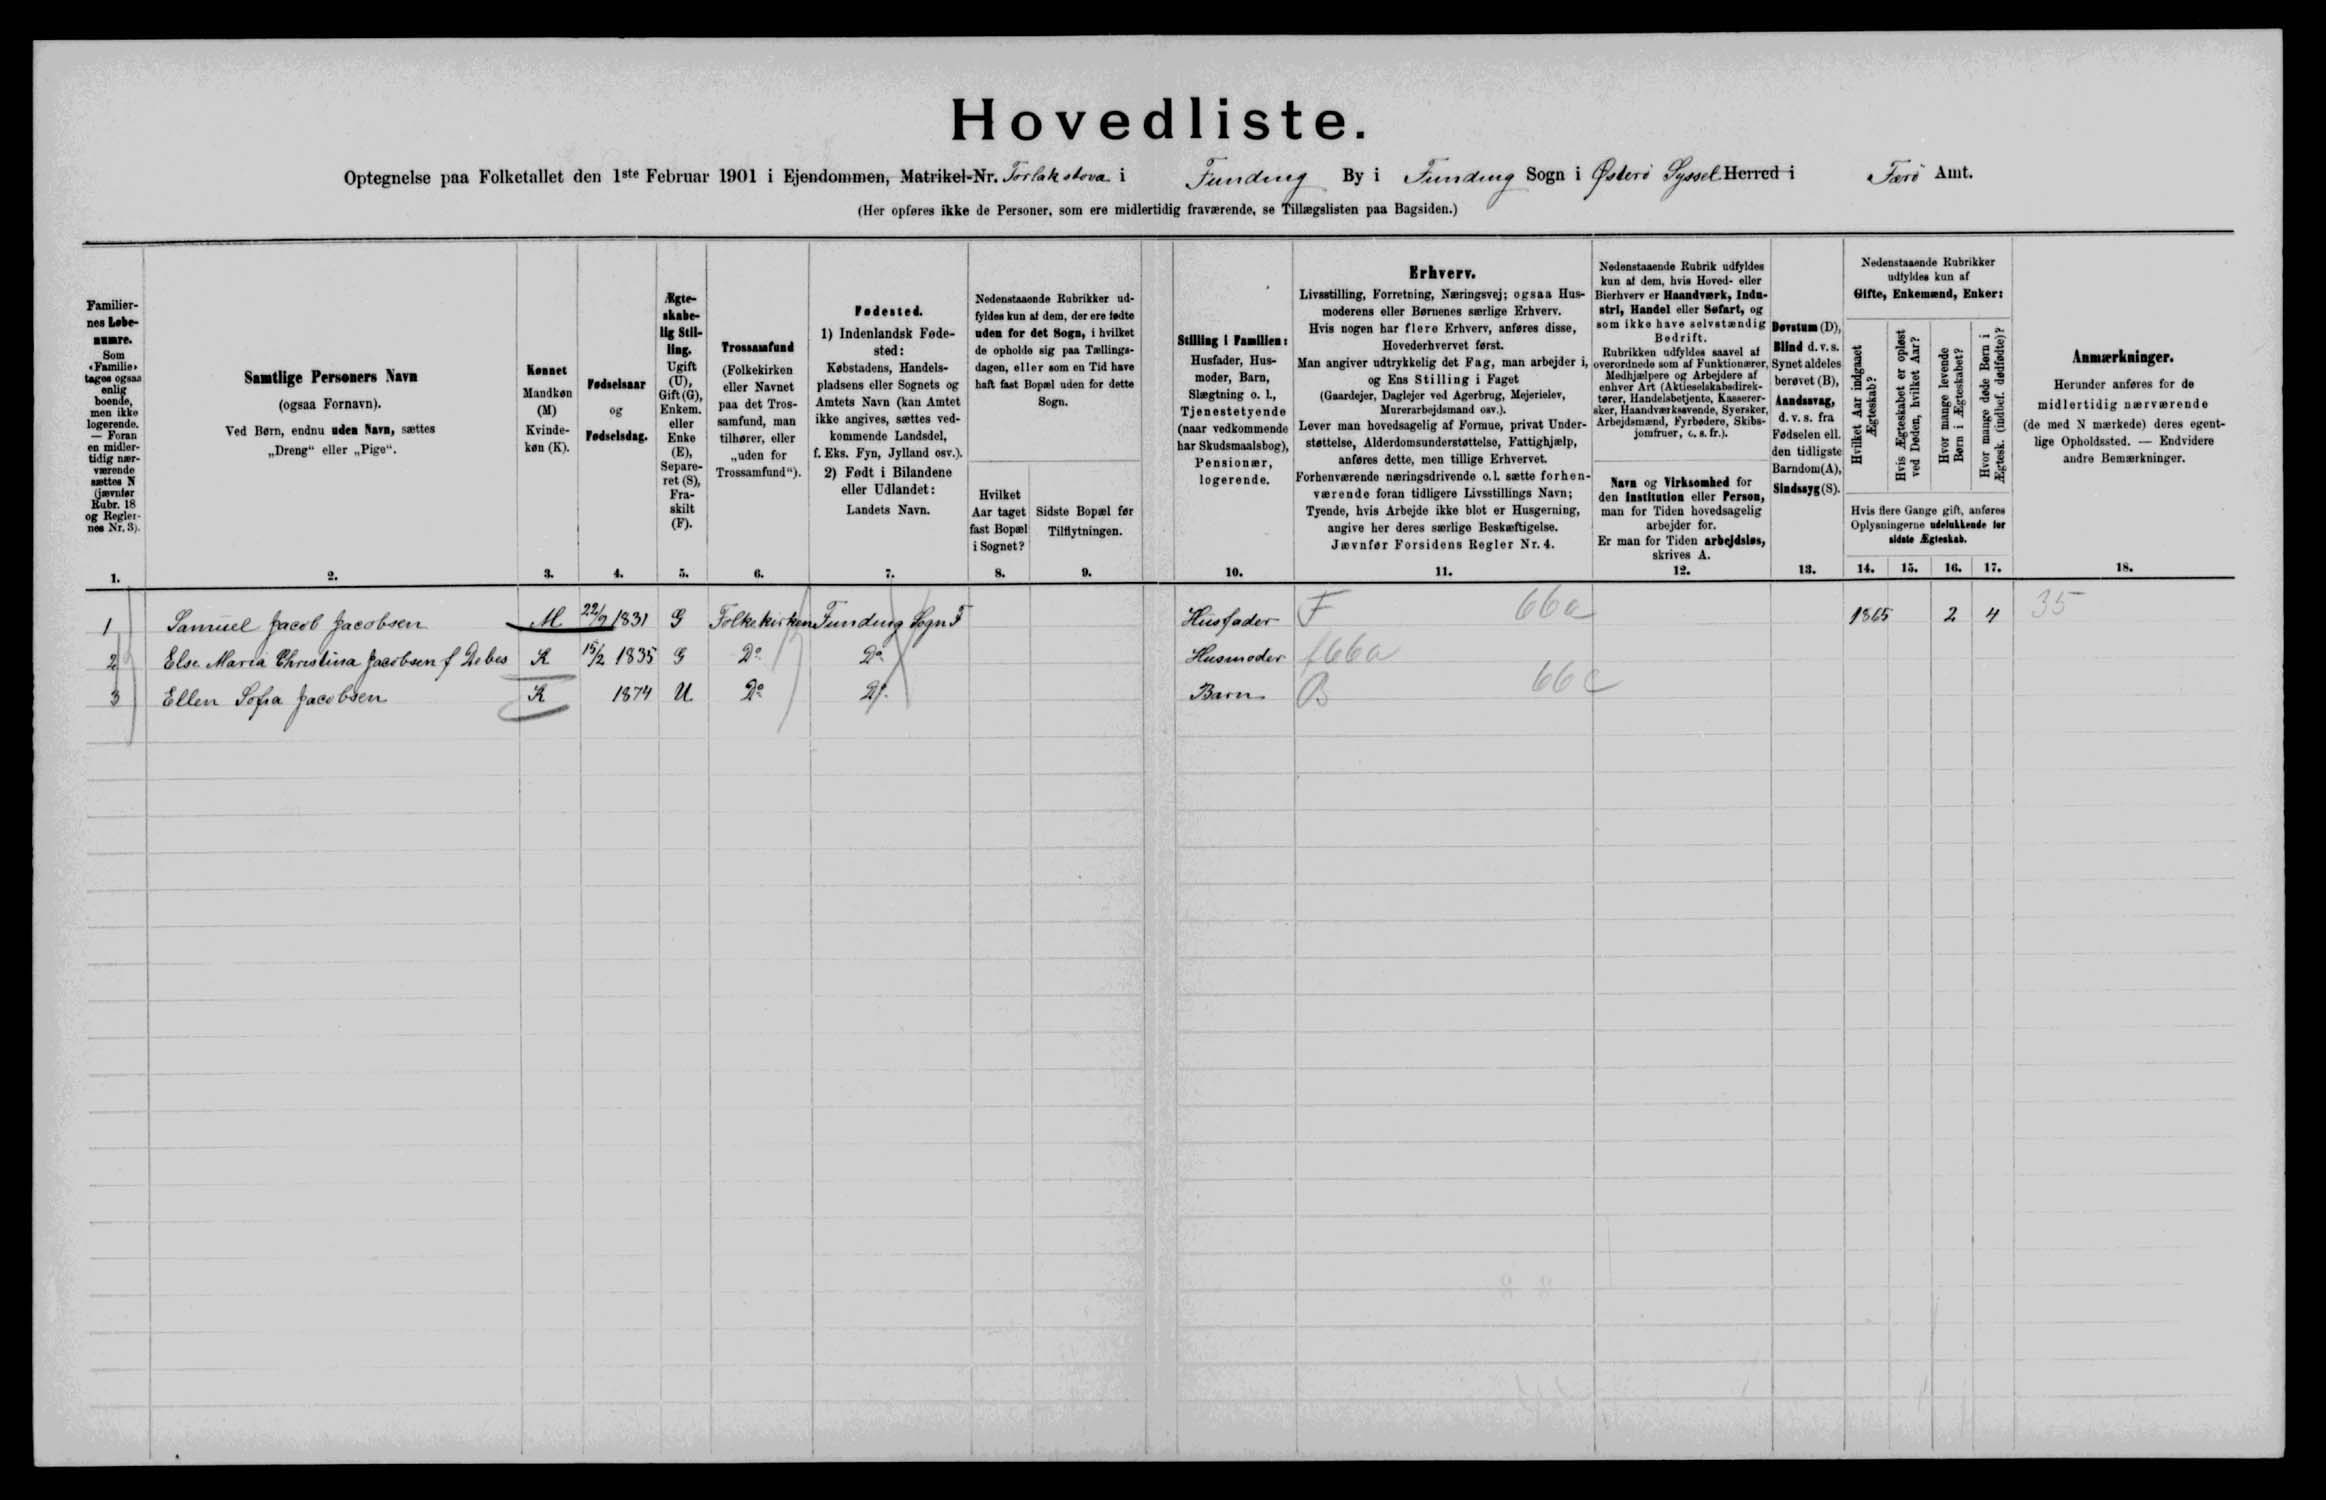 Hovedliste.
Optegnelse paa Folketallet den 1ste Februar 1901 i Ejendommen, Matrikel-Nr. Torlakstova i Funding By i Funding Sogn i Østerö Syssel Herred i Færö Amt.
(Her opføres ikke de Personer, som ere midlertidig fraværende, se Tillægslisten paa Bagsiden.)
Familier-
nes Løbe-
numre.
Som
«Familie»
tages ogsaa
enlig
boende,
men ikke
logerende.
— Foran
en midler-
tidig nær-
værende
sættes N
(jævnfør
Rubr. 18
og Regler-
nes Nr. 3).
1.
Samtlige Personers Navn
(ogsaa Fornavn).
Ved Børn, endnu uden Navn, sættes
„Dreng“ eller „Pige“.
2.
Kønnet
Mandkøn
(M)
Kvinde-
køn (K).
3.
Fødselsaar
og
Fødselsdag.
4.
Ægte-
skabe-
lig Stil-
ling.
Ugift
(U),
Gift (G),
Enkem.
eller
Enke
(E),
Separe-
ret (S),
Fra-
skilt
(F).
5.
Trossamfund
(Folkekirken
eller Navnet
paa det Tros-
samfund, man
tilhører, eller
„uden for
Trossamfund“).
6.
Fødested.
1) Indenlandsk Føde-
sted:
Købstadens, Handels-
pladsens eller Sognets og
Amtets Navn (kan Amtet
ikke angives, sættes ved-
kommende Landsdel,
f. Eks. Fyn, Jylland osv.).
2) Født i Bilandene
eller Udlandet:
Landets Navn.
7.
Nedenstaaende Rubrikker ud-
fyldes kun af dem, der ere fødte
uden for det Sogn, i hvilket
de opholde sig paa Tællings-
dagen, eller som en Tid have
haft fast Bopæl uden for dette
Sogn.
Hvilket
Aar taget
fast Bopæl
i Sognet?
8.
Sidste Bopæl før
Tilflytningen.
9.
Stilling i Familien:
Husfader, Hus-
moder, Barn,
Slægtning o. l.,
Tjenestetyende
(naar vedkommende
har Skudsmaalsbog),
Pensionær,
logerende.
10.
Erhverv.
Livsstilling, Forretning, Næringsvej; ogsaa Hus-
moderens eller Børnenes særlige Erhverv.
Hvis nogen har flere Erhverv, anføres disse,
Hovederhvervet først.
Man angiver udtrykkelig det Fag, man arbejder i,
og Ens Stilling i Faget
(Gaardejer, Daglejer ved Agerbrug, Mejerielev,
Murerarbejdsmand osv.).
Lever man hovedsagelig af Formue, privat Under-
støttelse, Alderdomsunderstøttelse, Fattighjælp,
anføres dette, men tillige Erhvervet.
Forhenværende næringsdrivende o. l. sætte forhen-
værende foran tidligere Livsstillings Navn;
Tyende, hvis Arbejde ikke blot er Husgerning,
angive her deres særlige Beskæftigelse.
Jævnfør Forsidens Regler Nr. 4.
11.
Nedenstaaende Rubrik udfyldes
kun af dem, hvis Hoved- eller
Bierhverv er Haandværk, Indu-
stri, Handel eller Søfart, og
som ikke have selvstændig
Bedrift.
Rubrikken udfyldes saavel af
overordnede som af Funktionærer,
Medhjælpere og Arbejdere af
enhver Art (Aktieselskabsdirek-
tører, Handelsbetjente, Kasserer-
sker, Haandværkssvende, Syersker,
Arbejdsmænd, Fyrbødere, Skibs-
jomfruer, o. s. fr.).
Navn og Virksomhed for
den Institution eller Person,
man for Tiden hovedsagelig
arbejder for.
Er man for Tiden arbejdsløs,
skrives A.
12.
Døvstum (D),
Blind d. v. s.
Synet aldeles
berøvet (B),
Aandssvag,
d. v. s. fra
Fødselen ell.
den tidligste
Barndom (A),
Sindssyg (S).
13.
Nedenstaaende Rubrikker
udfyldes kun af
Gifte, Enkemænd, Enker:
Hvilket Aar indgaaet
Ægteskab?
Hvis Ægteskabet er opløst
ved Døden, hvilket Aar?
Hvor mange levende
Børn i Ægteskabet?
Hvor mange døde Børn i
Ægtesk. (indbef. dødfødte)?
Hvis flere Gange gift, anføres
Oplysningerne udelukkende for
sidste Ægteskab.
14. 15. 16. 17.
Anmærkninger.
Herunder anføres for de
midlertidig nærværende
(de med N mærkede) deres egent-
lige Opholdssted. — Endvidere
andre Bemærkninger.
18.
1 Samuel Jacob Jacobsen M 22/9 1831 G Folkekirken Funding Sogn F Husfader F 66a 1865 2 4 35
2 Else Maria Christina Jacobsen f Debes K 15/2 1835 G Do Do Husmoder f66a
3 Ellen Sofia Jacobsen K 1874 U Do Do Barn B 66c